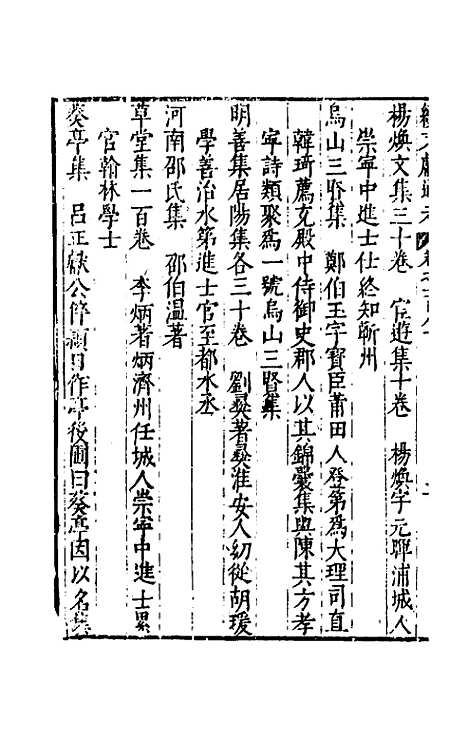 續文獻通考
楊煥文集三十卷　宦遊集十卷　楊煥字元暉浦城人
崇寧中進士仕終知蘄州
烏山三賢集　鄭伯玉字寶臣莆田人登第爲大理司直
韓琦薦充殿中侍御史郡人以其錦囊集與陳其方孝
寧詩類聚爲一號烏山三賢集
明善集居陽集各三十卷　劉彞著彞淮安人幼從胡瑗
學善治水第進士官至都水丞
河南邵氏集　邵伯溫著
草堂集一百卷　李炳著炳濟州任城人崇寧中進士累
官翰林學士
葵亭集　呂正獻公倅潁日作亭後圃曰葵亭因以名集